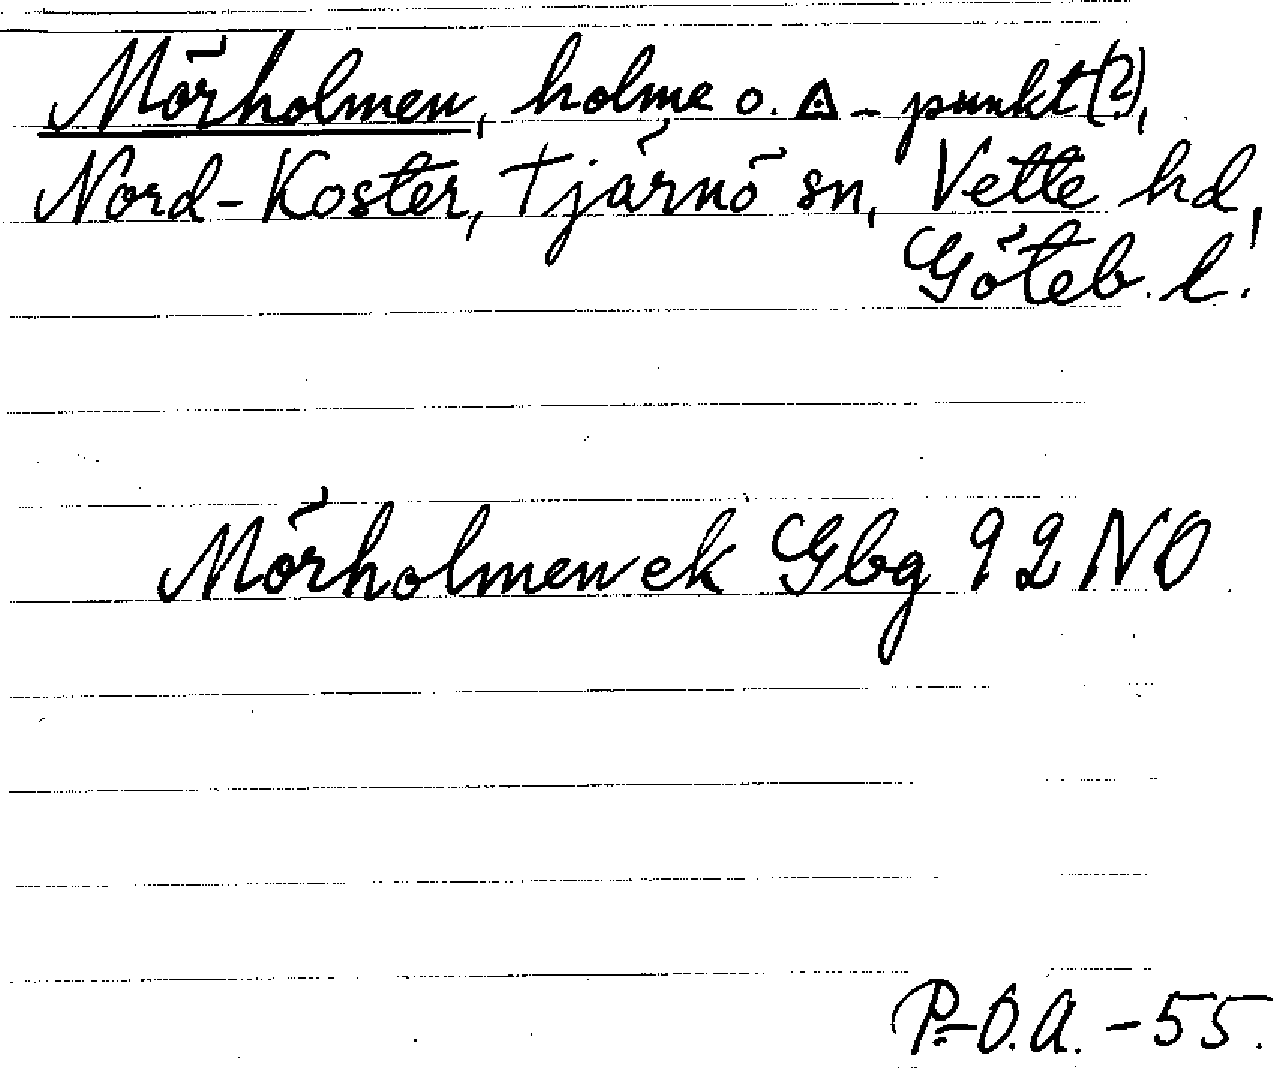 Mörholmen, holme o. △-punkt(?),
Nord-Koster, Tjärnö sn, Vette hd,
Göteb. l.
Mörholmen ek Gbg 92 NO
P.-O.A. -55.